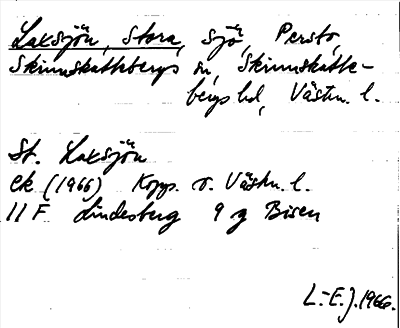 Laxsjön, Stora, sjö, Persbo,
Skinnskattebergs sn, Skinnskatte-
bergs hd, Västm. l.
St. Laxsjön
ek (1966) Kopp. o. Västm. l.
11 F Lindesberg 9 g Bisen
L.-E. J. 1966.